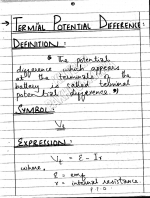 → TERMIAL POTENTIAL DIFFERENCE:
DEFINITION:
" The potential
difference which appears
at the terminals of the
battery is called terminal
potential difference "
SYMBOL:
Vt
EXPRESSION:
Vt = ε - Ir
where,
ε = emf
r = internal resistance